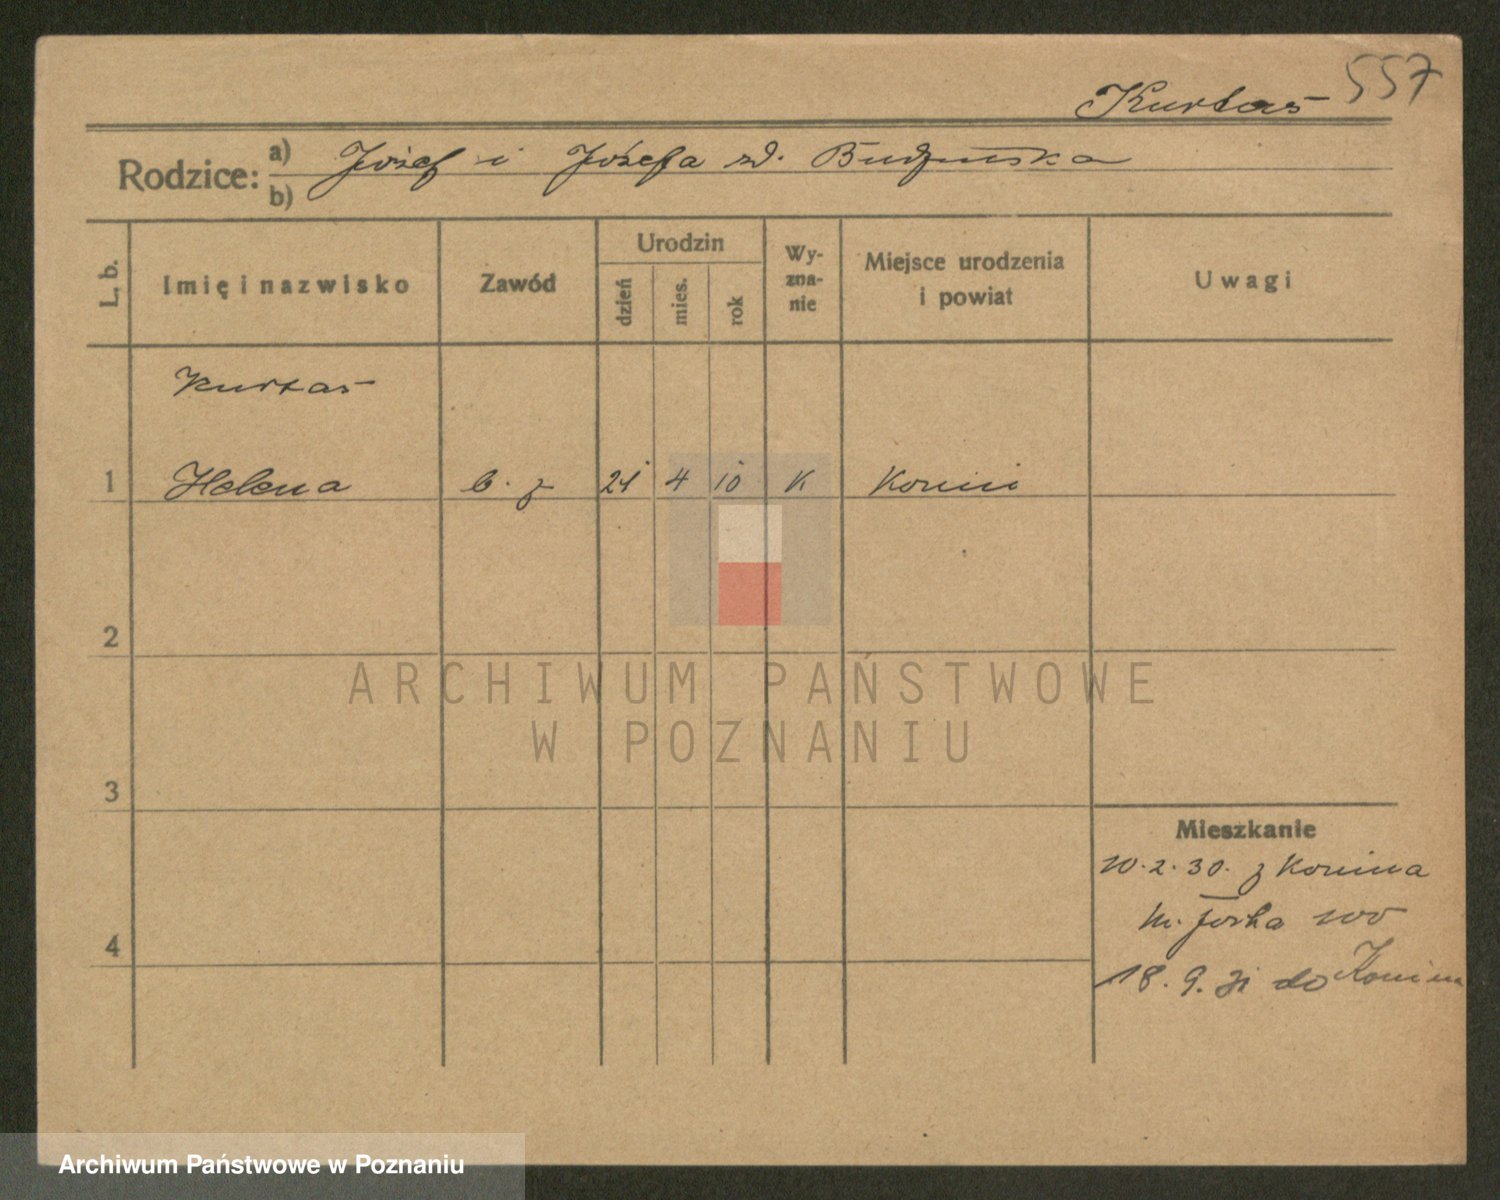 557
Kurtas
Rodzice: a) Józef i Józefa zd. Budzyńska
b)
L. b.
Imię i nazwisko
Zawód
Urodzin
dzień
mies.
rok
Wy-
zna-
nie
Miejsce urodzenia
i powiat
Uwagi
Kurtas
1 Helena b. z 21 4 10 K Konin
2
3
4
Mieszkanie
10.2.30. z Konina
18.9.31 do Konina
ARCHIWUM PAŃSTWOWE
W POZNANIU
Archiwum Państwowe w Poznaniu